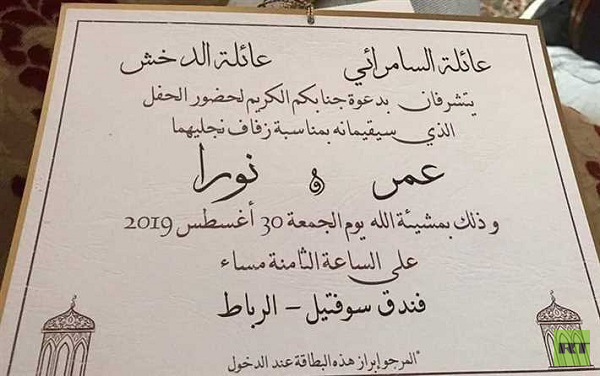 عائلة السامرائي عائلة الدخش
يتشرفان بدعوة جنابكم الكريم لحضور الحفل
الذي سيقيمانه بمناسبة زفاف نجليهما
عمر و نورا
و ذلك بمشيئة الله يوم الجمعة 30 أغسطس 2019
على الساعة الثامنة مساء
فندق سوفتيل - الرباط
*المرجو إبراز هذه البطاقة عند الدخول
RT